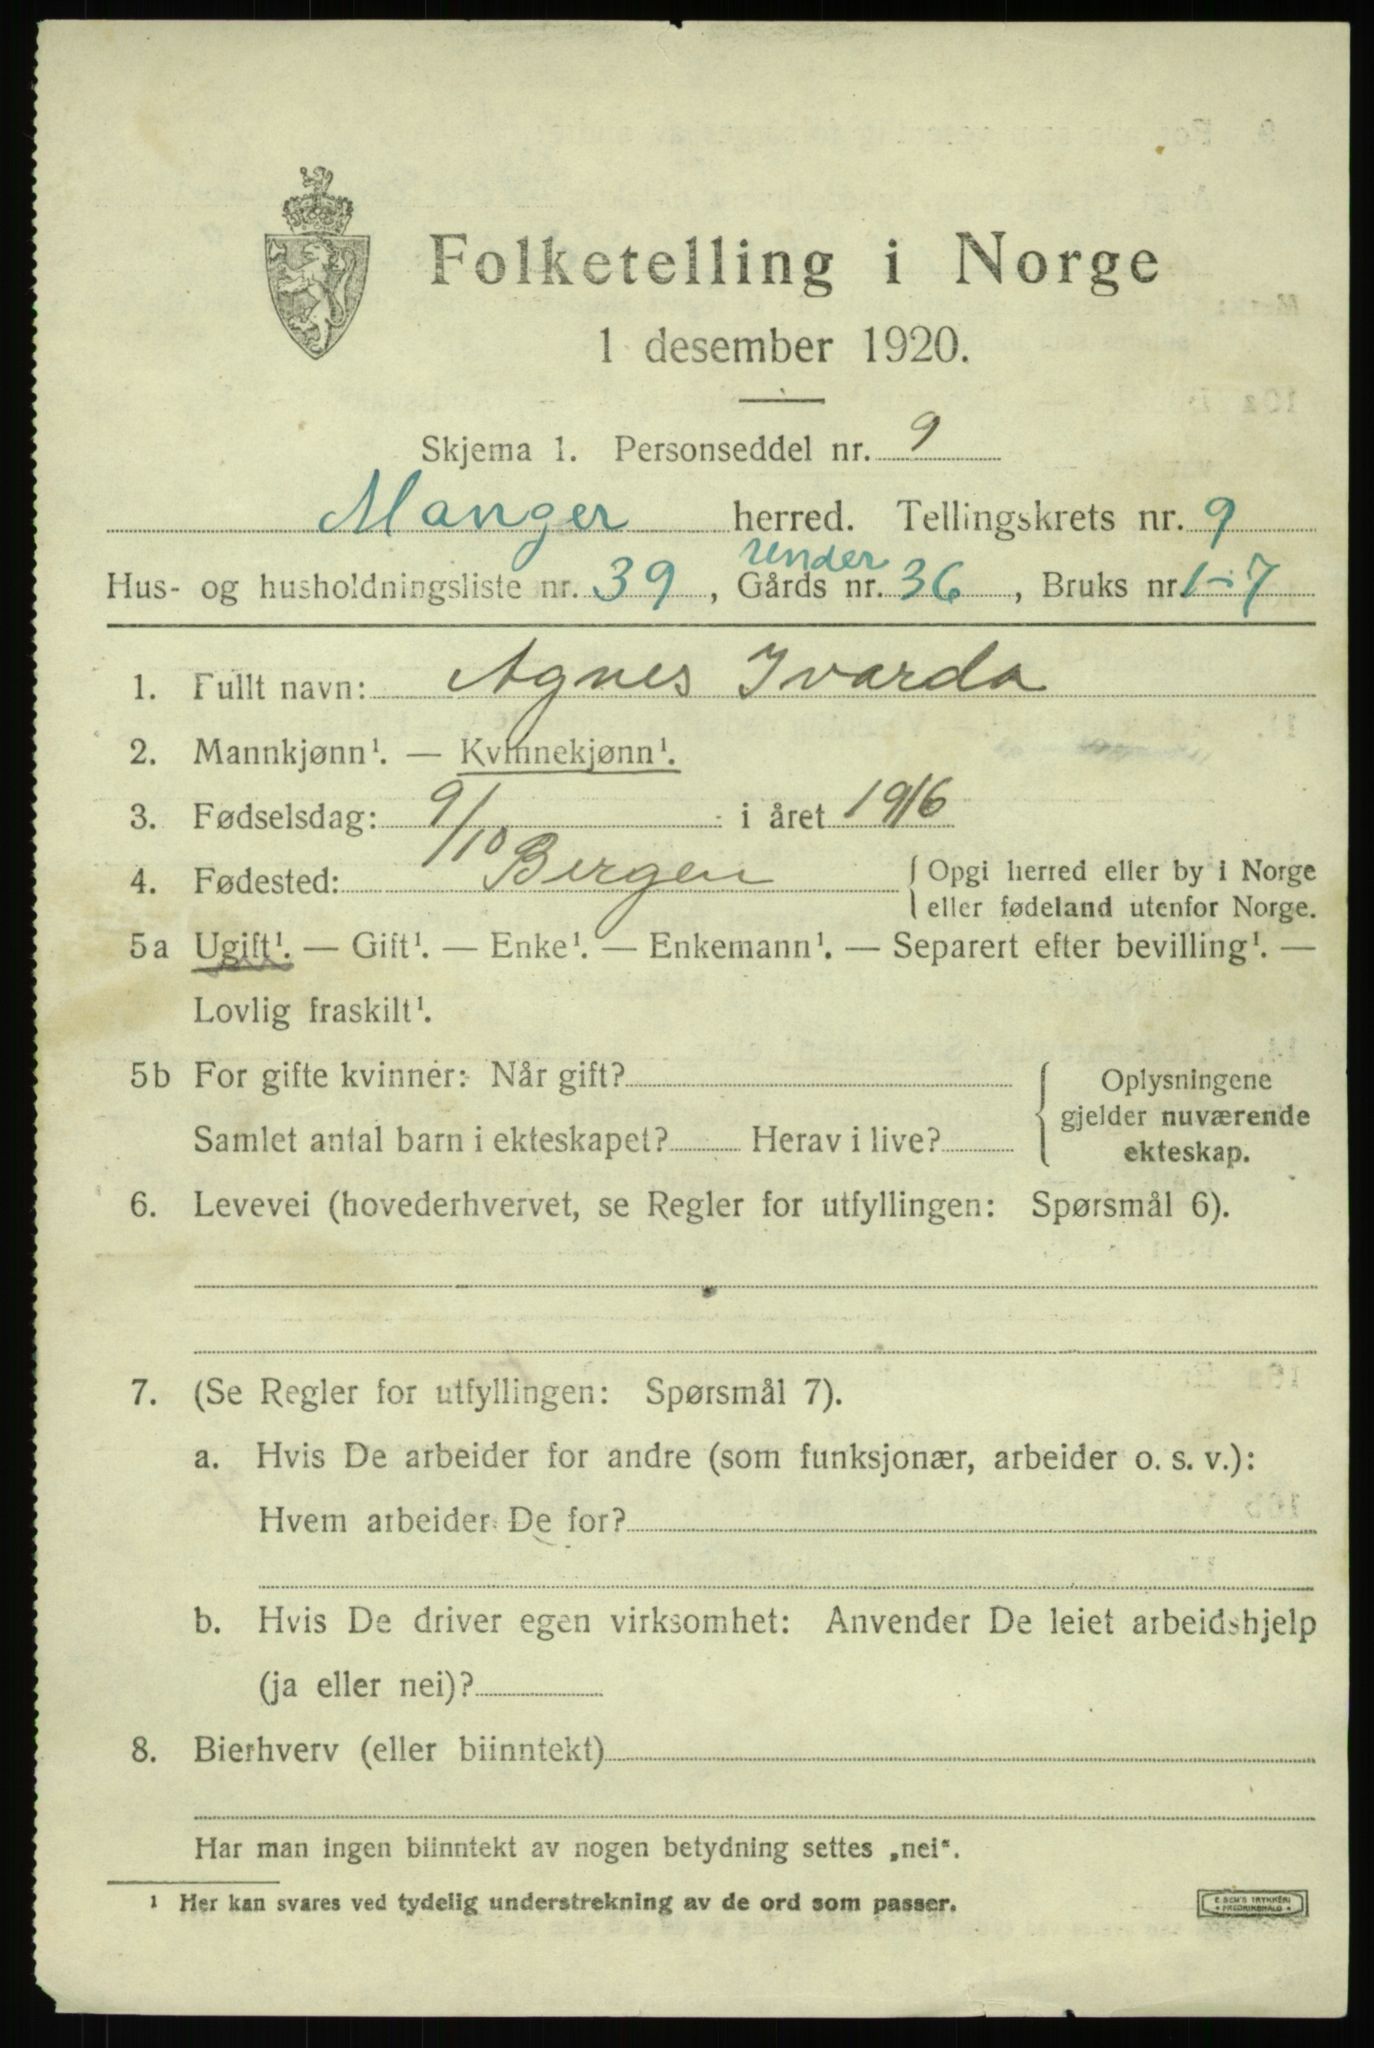 Folketelling i Norge
1 desember 1920.
Skjema 1. Personseddel nr. 9
Manger herred. Tellingskrets nr. 9
under
Hus- og husholdningsliste nr. 39, Gårds nr. 36, Bruks nr. 1-7
1. Fullt navn: Agnes Ivarda
2. Mannkjønn¹. — Kvinnekjønn¹.
3. Fødselsdag: 9/10 i året 1916
4. Fødested: Bergen { Opgi herred eller by i Norge
eller fødeland utenfor Norge.
5a Ugift¹. — Gift¹. — Enke¹. — Enkemann¹. — Separert efter bevilling¹. —
Lovlig fraskilt¹.
5b For gifte kvinner: Når gift?
Samlet antal barn i ekteskapet? Herav i live?
{ Oplysningene
gjelder nuværende
ekteskap.
6. Levevei (hovederhvervet, se Regler for utfyllingen: Spørsmål 6).
7. (Se Regler for utfyllingen: Spørsmål 7).
a. Hvis De arbeider for andre (som funksjonær, arbeider o. s. v.):
Hvem arbeider De for?
b. Hvis De driver egen virksomhet: Anvender De leiet arbeidshjelp
(ja eller nei)?
8. Bierhverv (eller biinntekt)
Har man ingen biinntekt av nogen betydning settes „nei“.
¹ Her kan svares ved tydelig understrekning av de ord som passer.
E. SEM'S TRYKKERI
FREDRIKSHALD